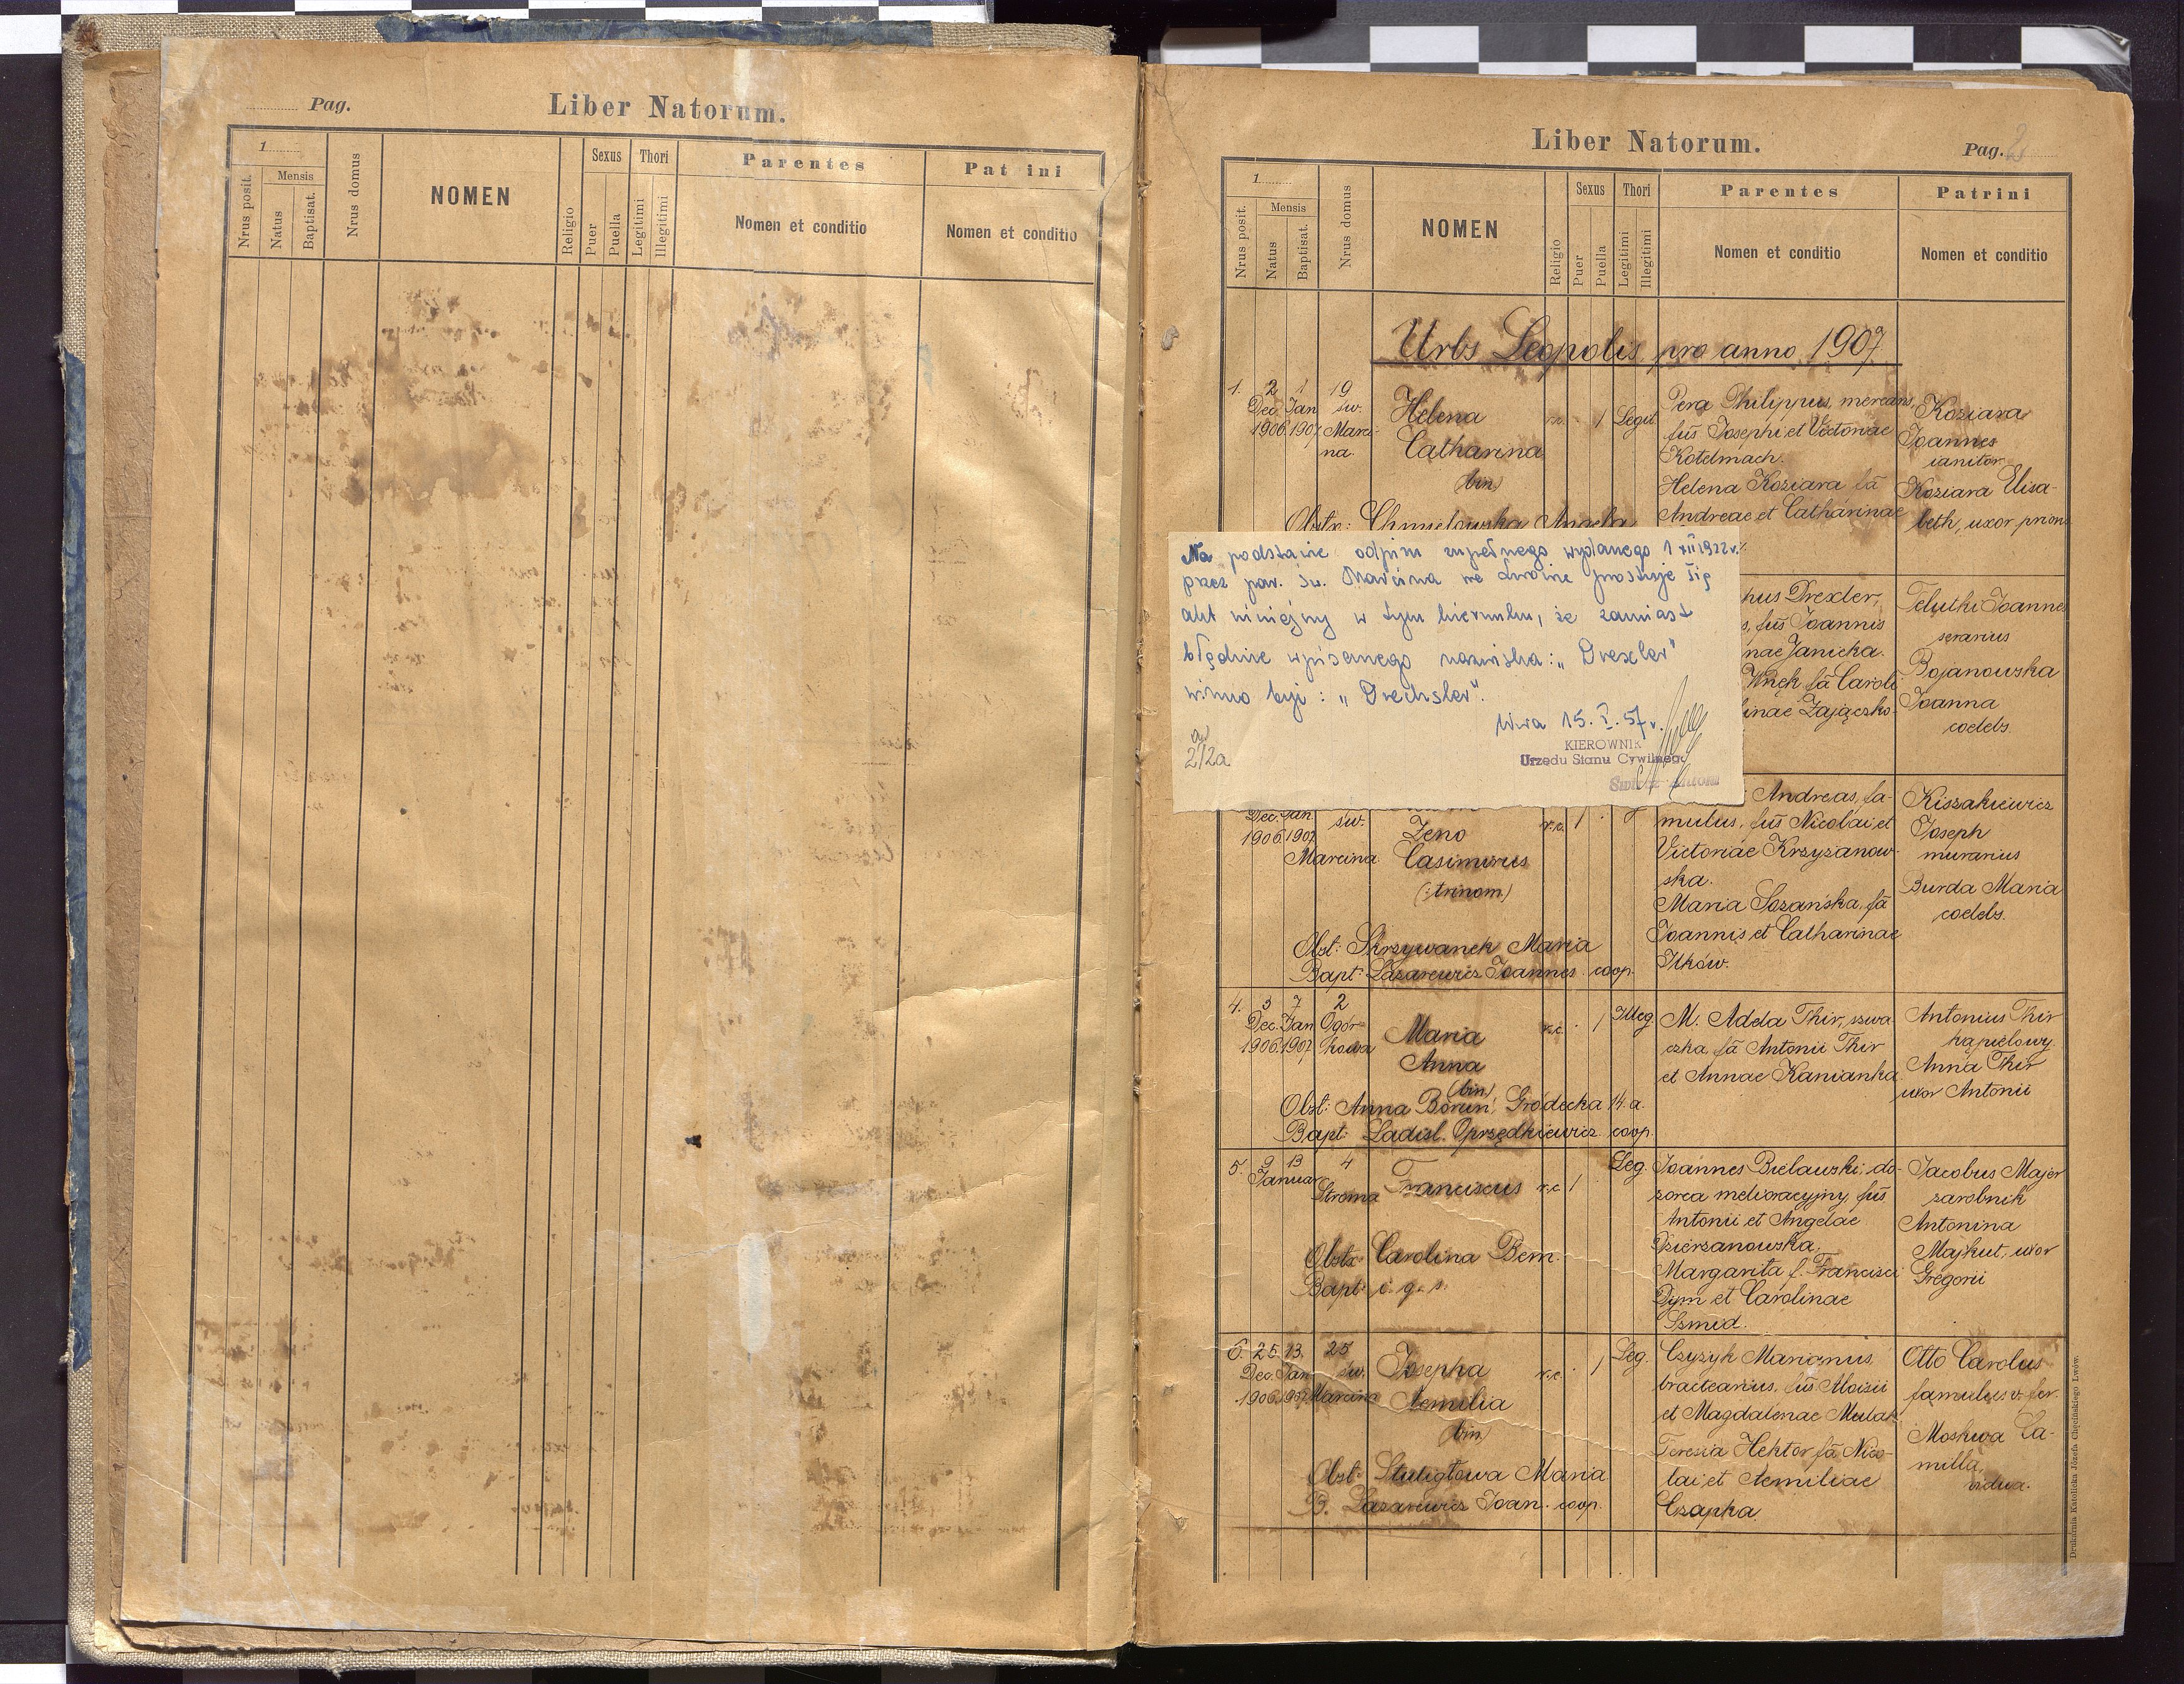 Pag.
Liber Natorum.
1
Nrus posit.
Mensis
Natus
Baptisat.
Nrus domus
NOMEN
Religio
Sexus
Puer
Puella
Thori
Legitimi
Illegitimi
Parentes
Nomen et conditio
Pat ini
Nomen et conditio
Liber Natorum.
Pag. 2
1
Nrus posit.
Mensis
Natus
Baptisat.
Nrus domus
NOMEN
Religio
Sexus
Puer
Puella
Thori
Legitimi
Illegitimi
Parentes
Nomen et conditio
Patrini
Nomen et conditio
Urbs Leopolis pro anno 1907
1. 2 1 19
Dec. Jan św.
1906. 1907 Marci-
na.
Helena
Catharina
(bin)
1 Legit.
Pera Philippus, mercans,
fūs Josephi et Victoriae
Kotelmach.
Helena Koziara fā
Andreae et Catharinae
Koziara
Joannes
ianitor
Koziara Elisa-
beth, uxor prion.
Obstr: Chmielowska Angela
Na podstawie odpisu zupełnego wydanego 1 XII 1922 r.
przez par. św. Marcina we Lwowie prostuje się
akt niniejszy w tym kierunku, że zamiast
błędnie wpisanego nazwiska: „Drexler"
winno być: „Drechsler".
W-wa 15. I. 57 r.
KIEROWNIK
Urzędu Stanu Cywilnego
ad
2/2a
hus Drexler,
s, fūs Joannis
nae Janicka.
Wnęk fā Caroli
linae Zajączko-
Teluthi Joannes
serarius
Bojanowska
Joanna
coelebs.
Dec. Jan św.
1906. 1907
Marcina
Zeno
Casimirus
(:trinom.)
r.c. 1
Andreas, fa-
mulus, fūs Nicolai et
Victoriae Krzyżanow-
ska.
Maria Sozańska, fā
Joannis et Catharinae
Ilków.
Kiszakiewicz
Joseph
murarius
Burda Maria
coelebs.
Obst: Skrzywanek Maria
Bapt: Łazarewicz Joannes coop.
4. 3 7 2
Dec. Jan Ogór-
1906. 1907 kowa
Maria
Anna
(bin)
r.c. 1 Illeg.
M. Adela Thir, szwa-
czka, fā Antonii Thir
et Annae Kanianka
Antonius Thir
kąpielowy.
Anna Thir
uxor Antonii
Obst: Anna Boruń, Gródecka 14. a.
Bapt: Ladisl. Oprzędkiewicz coop.
5. 9 13 4
Januar Stroma
Franciscus
r.c. 1
Leg.
Joannes Bielawski, do-
zorca melioracyjny, fūs
Antonii et Angelae
Dzierżanowska,
Margarita f. Francisci
Dym et Carolinae
Szmid.
Jacobus Majer
zarobnik
Antonina
Majkut, uxor
Gregorii
Obstr: Carolina Bem.
Bapt: c. g. s.
6. 25 13. 25
Dec. Jan św.
1906. 1907 Marcina
Josepha
Aemilia
(bin)
r.c. 1
Leg.
Czyżyk Marianus,
bractearius, fūs Moisii
et Magdalenae Mulak
Teresia Hektor fā Nico-
lai et Aemiliae
Czapka.
Otto Carolus
famulus v. fer.
Moskwa Ca-
milla,
vidua.
Obst: Stuligłowa Maria
B. Łazarewicz Joan. coop.
Drukarnia Katolicka Józefa Chęcińskiego Lwów.